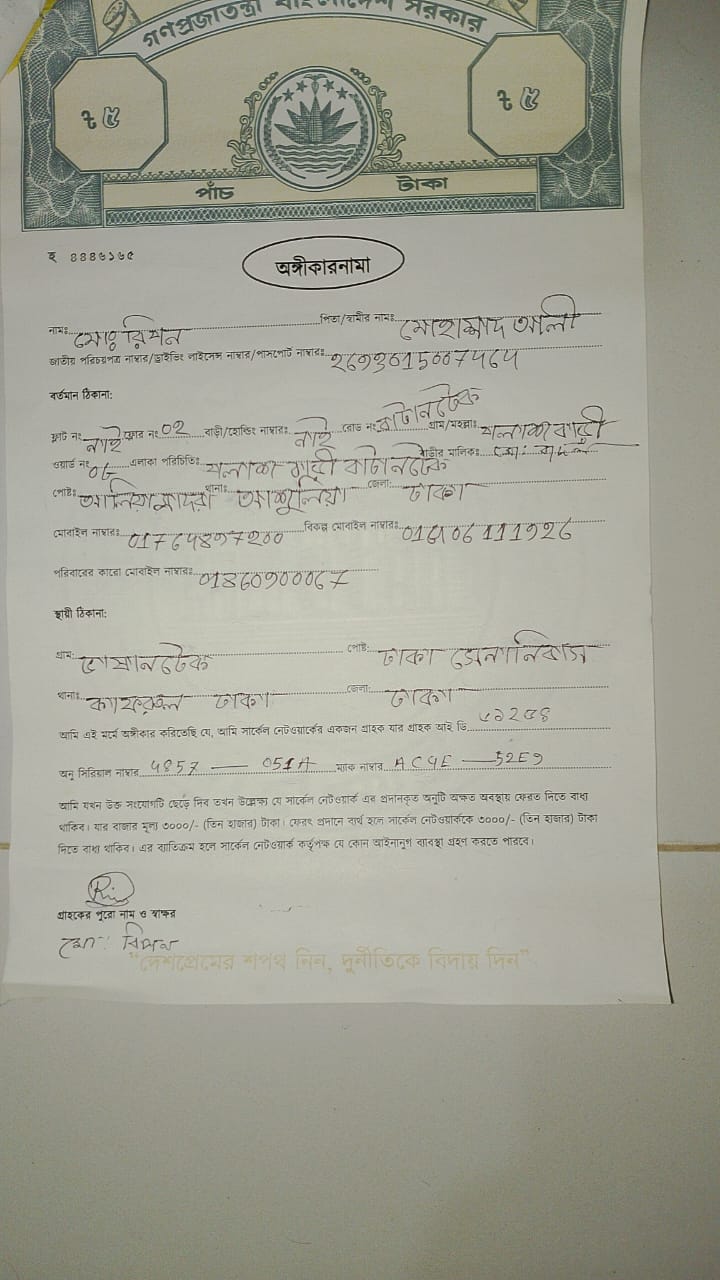 গণপ্রজাতন্ত্রী বাংলাদেশ সরকার
৳ ৫ ৳ ৫
পাঁচ টাকা
হ ৪৪৪৬১৬৫
অঙ্গীকারনামা
নামঃ মোঃ রিপন পিতা/স্বামীর নামঃ মোহাম্মাদ আলী
জাতীয় পরিচয়পত্র নাম্বার/ড্রাইভিং লাইসেন্স নাম্বার/পাসপোর্ট নাম্বারঃ
বর্তমান ঠিকানা:
ফ্লাট নং নাই ফ্লোর নং ০২ বাড়ী/হোল্ডিং নাম্বারঃ নাই রোড নং বাটানটেক গ্রাম/মহল্লাঃ পলাশ বাড়ী
ওয়ার্ড নং ০৮ এলাকা পরিচিতিঃ পলাশ বাড়ী বাটানটেক বাড়ীর মালিকঃ
পোষ্টঃ থানাঃ আশুলিয়া জেলা: ঢাকা
মোবাইল নাম্বারঃ বিকল্প মোবাইল নাম্বারঃ
পরিবারের কারো মোবাইল নাম্বারঃ
স্থায়ী ঠিকানা:
গ্রাম: ভাষানটেক পোষ্ট: ঢাকা সেনানিবাস
থানাঃ কাফরুল ঢাকা জেলা: ঢাকা
আমি এই মর্মে অঙ্গীকার করিতেছি যে, আমি সার্কেল নেটওয়ার্কের একজন গ্রাহক যার গ্রাহক আই ডি
অনু সিরিয়াল নাম্বার 4857 — 051A ম্যাক নাম্বার
আমি যখন উক্ত সংযোগটি ছেড়ে দিব তখন উল্লেক্ষ্য যে সার্কেল নেটওয়ার্ক এর প্রদানকৃত অনুটি অক্ষত অবস্থায় ফেরত দিতে বাধ্য
থাকিব। যার বাজার মূল্য ৩০০০/- (তিন হাজার) টাকা। ফেরৎ প্রদানে ব্যর্থ হলে সার্কেল নেটওয়ার্ককে ৩০০০/- (তিন হাজার) টাকা
দিতে বাধ্য থাকিব। এর ব্যতিক্রম হলে সার্কেল নেটওয়ার্ক কর্তৃপক্ষ যে কোন আইনানুগ ব্যবস্থা গ্রহণ করতে পারবে।
গ্রাহকের পুরো নাম ও স্বাক্ষর
মোঃ রিপন
"দেশপ্রেমের শপথ নিন, দুর্নীতিকে বিদায় দিন"